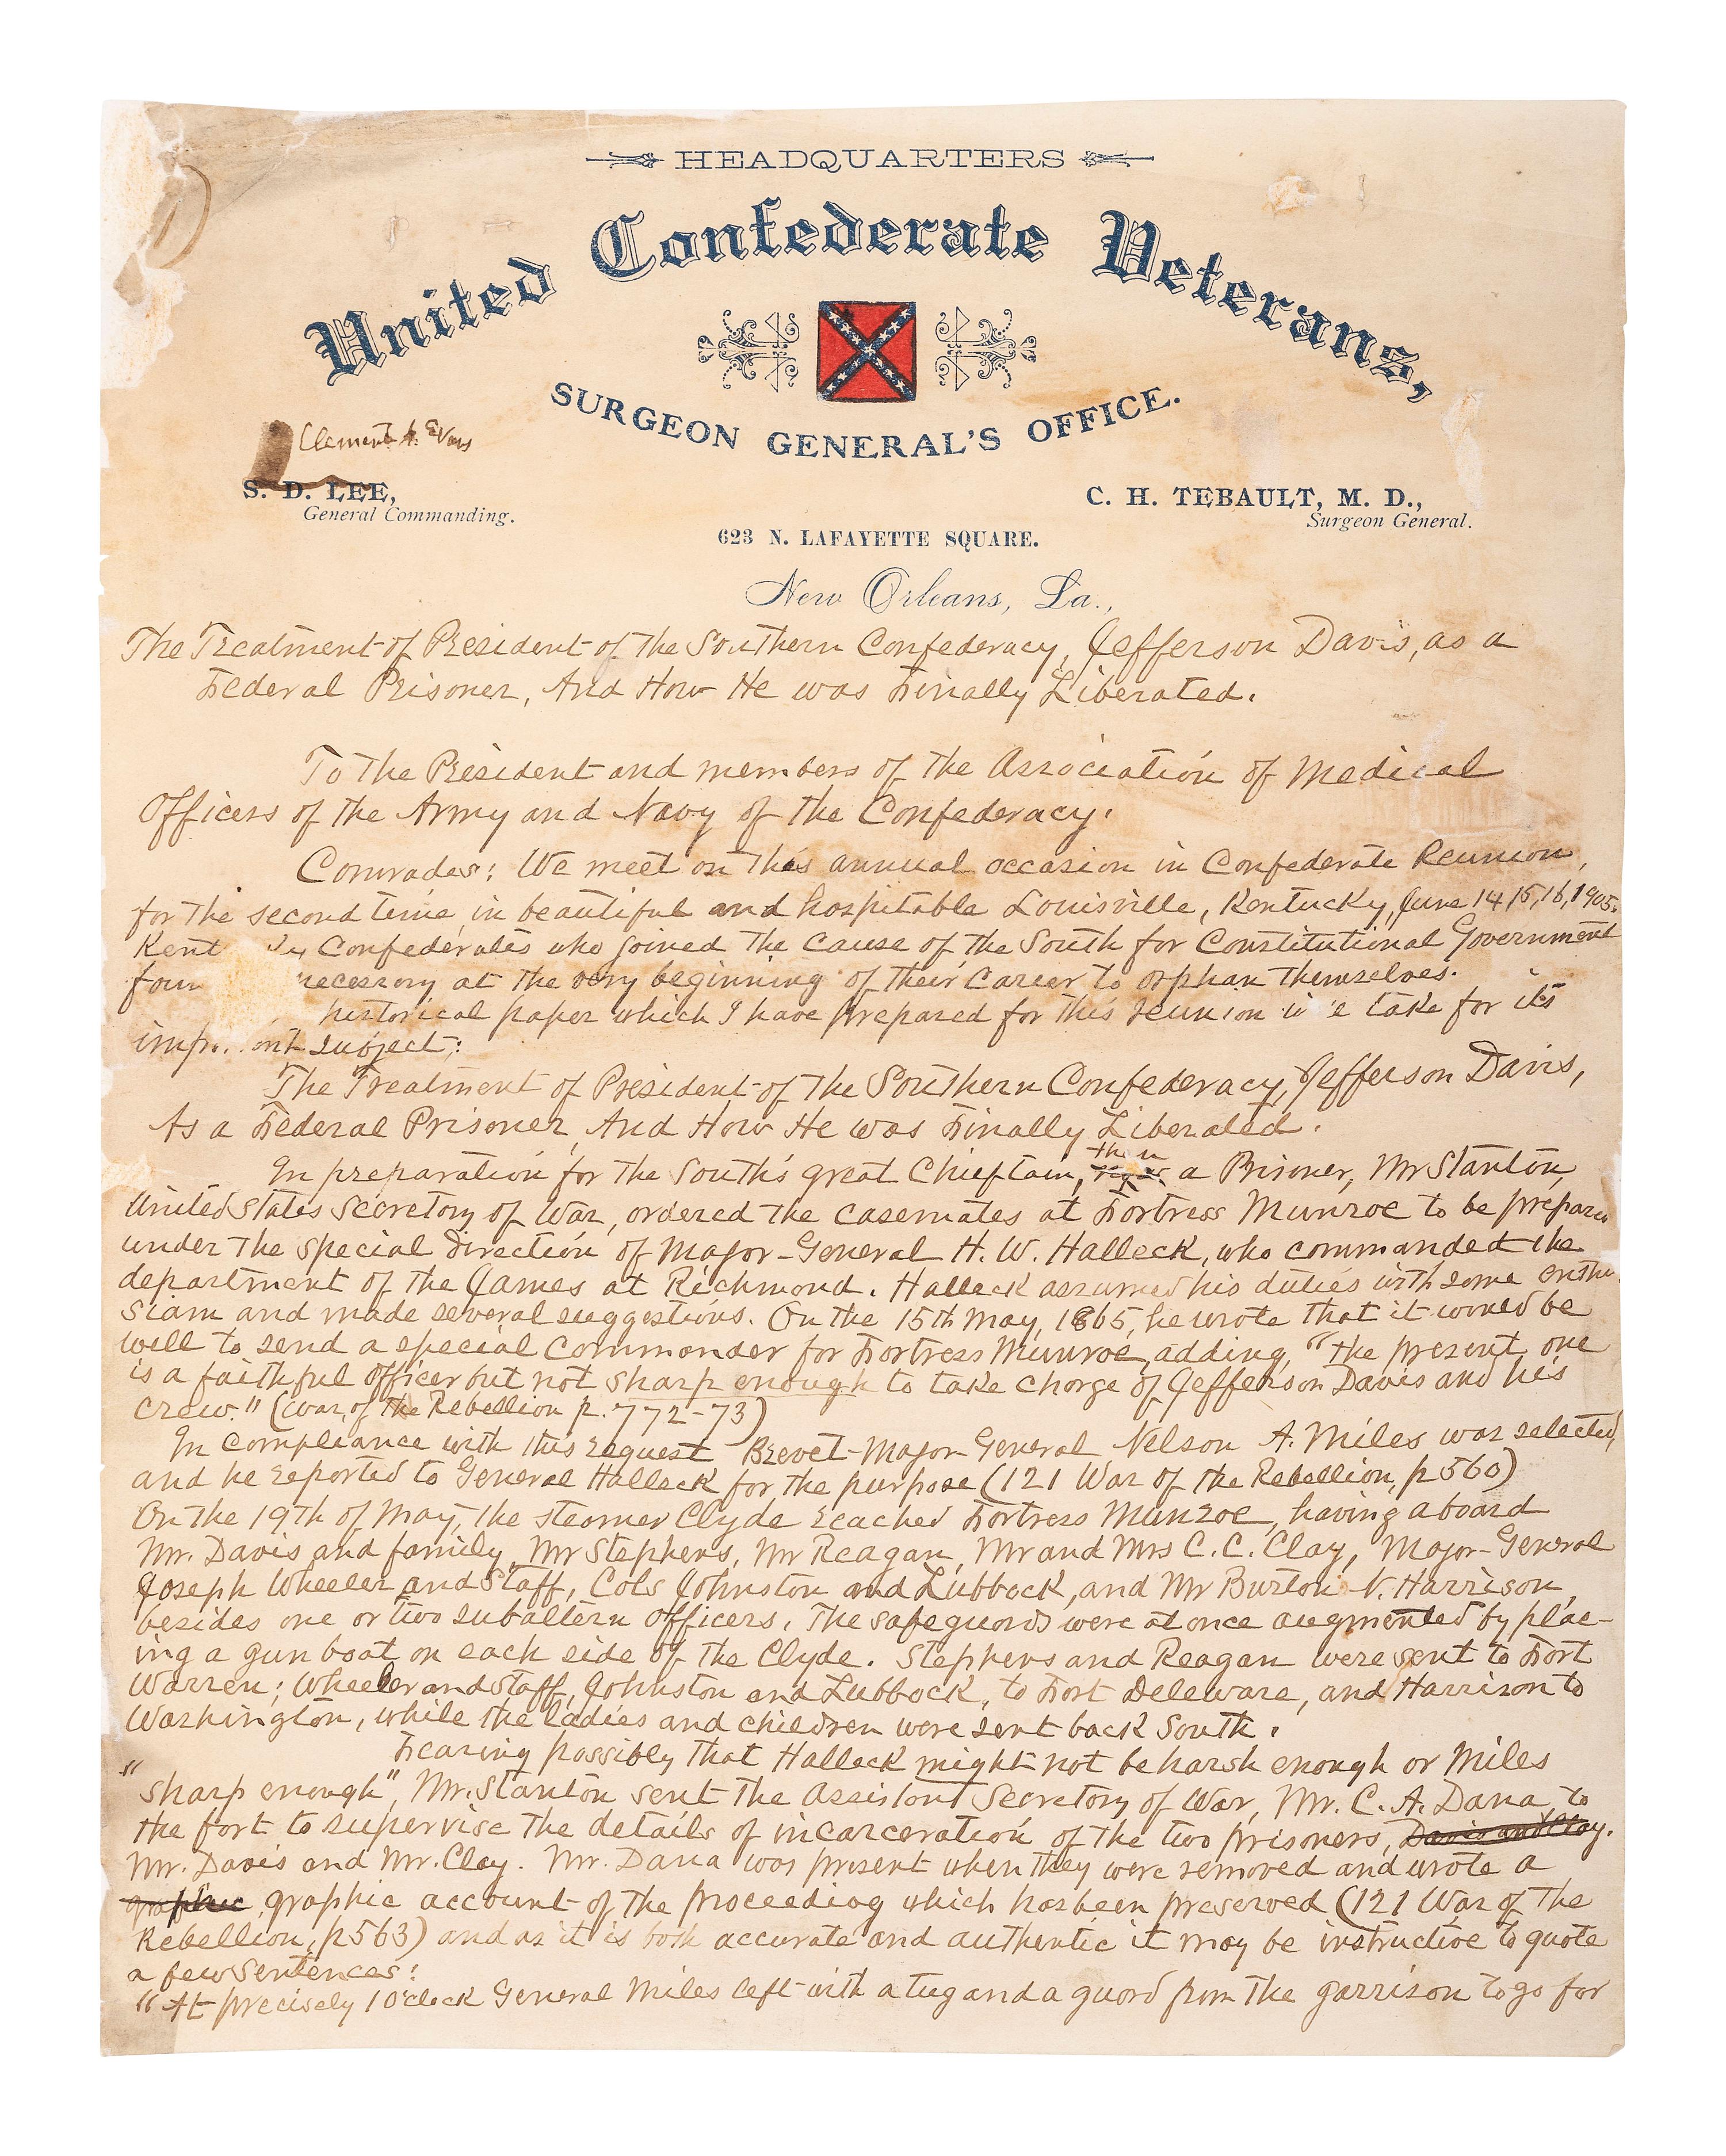 HEADQUARTERS
United Confederate Veterans,
SURGEON GENERAL'S OFFICE.
Clement A. Evans
S. D. LEE,
General Commanding.
C. H. TEBAULT, M. D.,
Surgeon General.
623 N. LAFAYETTE SQUARE.
New Orleans, La.,
The Treatment of President of The Southern Confederacy, Jefferson Davis, as a
Federal Prisoner, And How He was Finally Liberated.
To The President and members of the Association of Medical
Officers of the Army and Navy of the Confederacy.
Comrades: We meet on this annual occasion in Confederate Reunion,
for the second time, in beautiful and hospitable Louisville, Kentucky, June 14, 15, 16, 1905.
Kent ky Confederates who joined the cause of the South for Constitutional Government
foun necessary at the very beginning of their career to orphan themselves.
historical paper which I have prepared for this reunion take for its
subject:
The Treatment of President of The Southern Confederacy, Jefferson Davis,
As a Federal Prisoner, And How He was Finally Liberated.
In preparation for the South's great Chieftain, then a Prisoner, Mr Stanton,
United States Secretory of War, ordered the casemates at Fortress Munroe to be prepared
under the special direction of Major-General H. W. Halleck, who commanded the
department of the James at Richmond. Halleck assumed his duties with some enthu
siam and made several suggestions. On the 15th May, 1865, he wrote that it would be
well to send a special commander for Fortress Munroe, adding, "the present one
is a faithful officer but not sharp enough to take charge of Jefferson Davis and his
crew." (War of the Rebellion p. 772-73)
In compliance with this request Brevet-Major-General Nelson A. Miles was selected,
and he reported to General Halleck for the purpose (121 War of the Rebellion, p 560)
On the 19th of May, the steamer Clyde reached Fortress Munroe, having aboard
Mr. Davis and family, Mr Stephens, Mr Reagan, Mr and Mrs C. C. Clay, Major-General
Joseph Wheeler and Staff, Cols Johnston and Lubbock, and Mr Burton N. Harrison,
besides one or two subaltern officers. The safeguards were at once augmented by plac-
ing a gun boat on each side of the Clyde. Stephens and Reagan were sent to Fort
Warren; Wheeler and Staff, Johnston and Lubbock, to Fort Deleware, and Harrison to
Washington, while the ladies and children were sent back South.
Fearing possibly that Halleck might not be harsh enough or Miles
"sharp enough", Mr. Stanton sent the Assistant Secretory of War, Mr. C. A. Dana, to
the fort to supervise the details of incarceration of the two prisoners, Davis and Clay.
Mr. Davis and Mr. Clay. Mr. Dana was present when they were removed and wrote a
graphic graphic account of the proceeding which has been preserved (121 War of the
Rebellion, p 563) and as it is both accurate and authentic it may be instructive to quote
a few sentences:
"At precisely 1 O'clock General Miles left with a tug and a guard from the garrison to go for